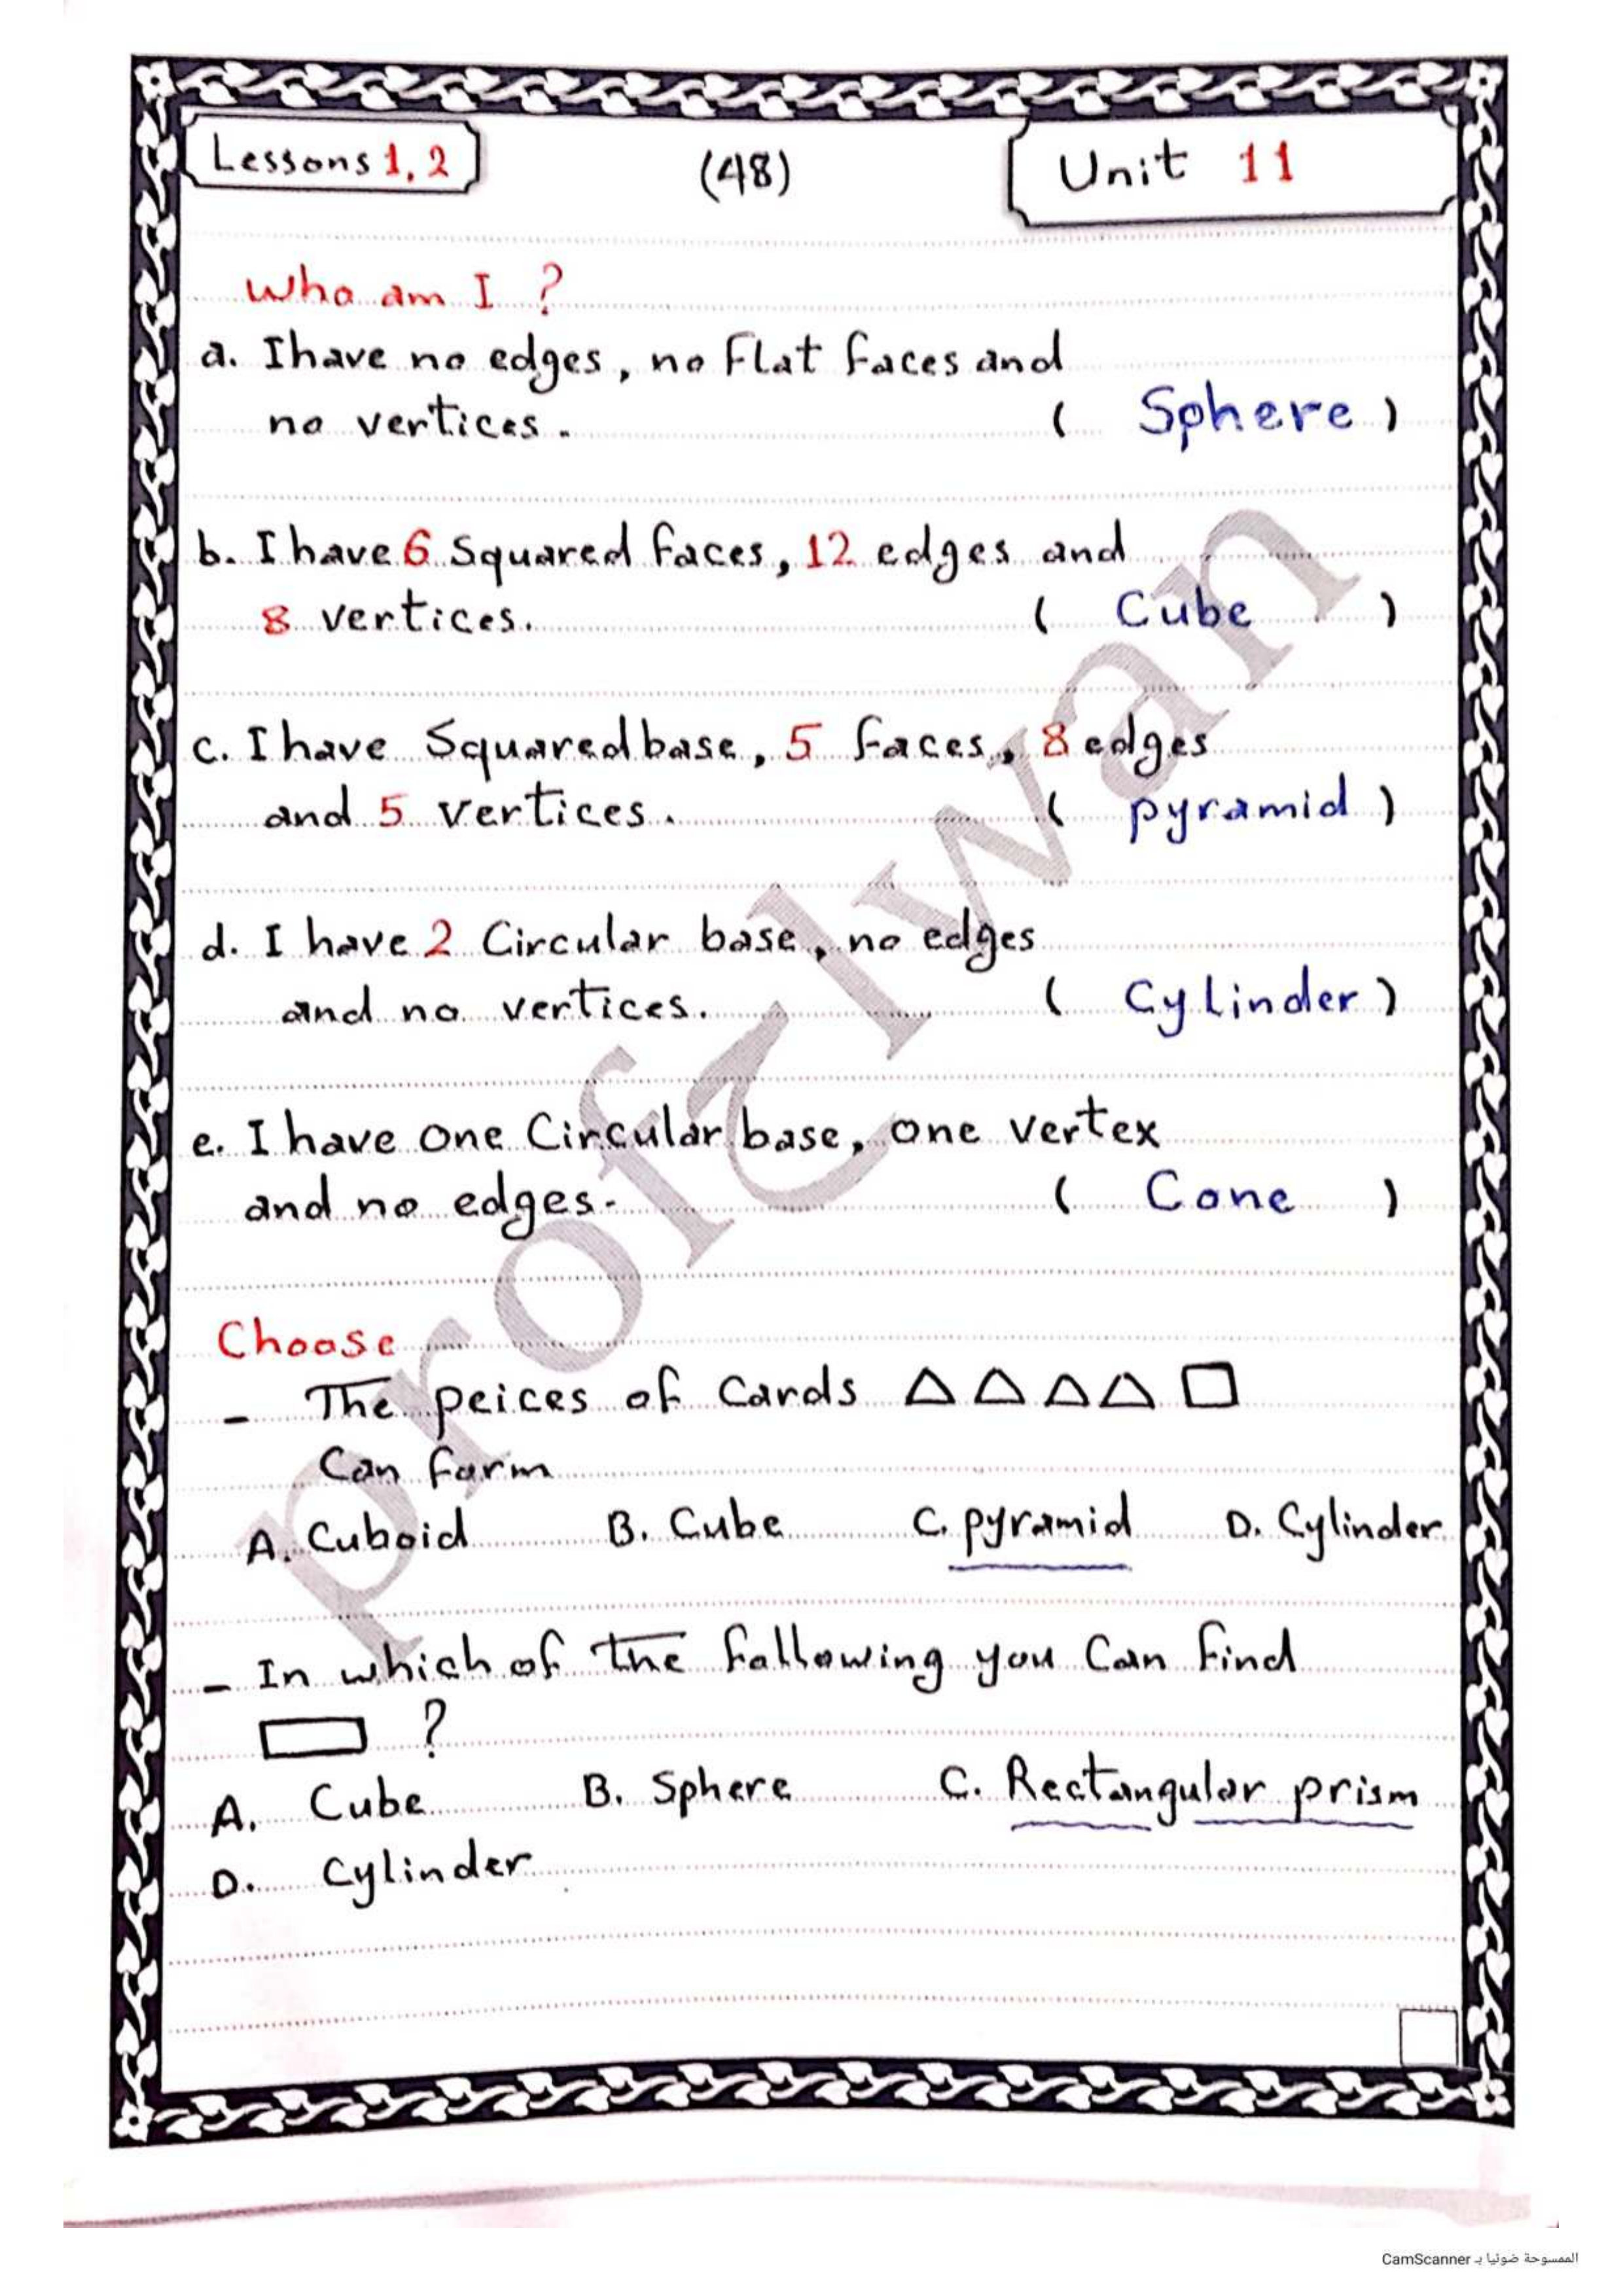 Lessons 1, 2
(48)
Unit 11
Who am I ?
a. I have no edges, no Flat faces and
no vertices. ( Sphere )
b. I have 6 Squared faces, 12 edges and
8 vertices. ( Cube )
c. I have Squared base, 5 faces, 8 edges
and 5 vertices. ( pyramid )
d. I have 2 Circular base, no edges
and no vertices. ( Cylinder )
e. I have one Circular base, one vertex
and no edges. ( Cone )
Choose
- The peices of Cards
Can form
A. Cuboid B. Cube C. pyramid D. Cylinder
- In which of the following you Can find
?
A. Cube B. Sphere C. Rectangular prism
D. Cylinder
prof Elwan
الممسوحة ضوئيا بـ CamScanner